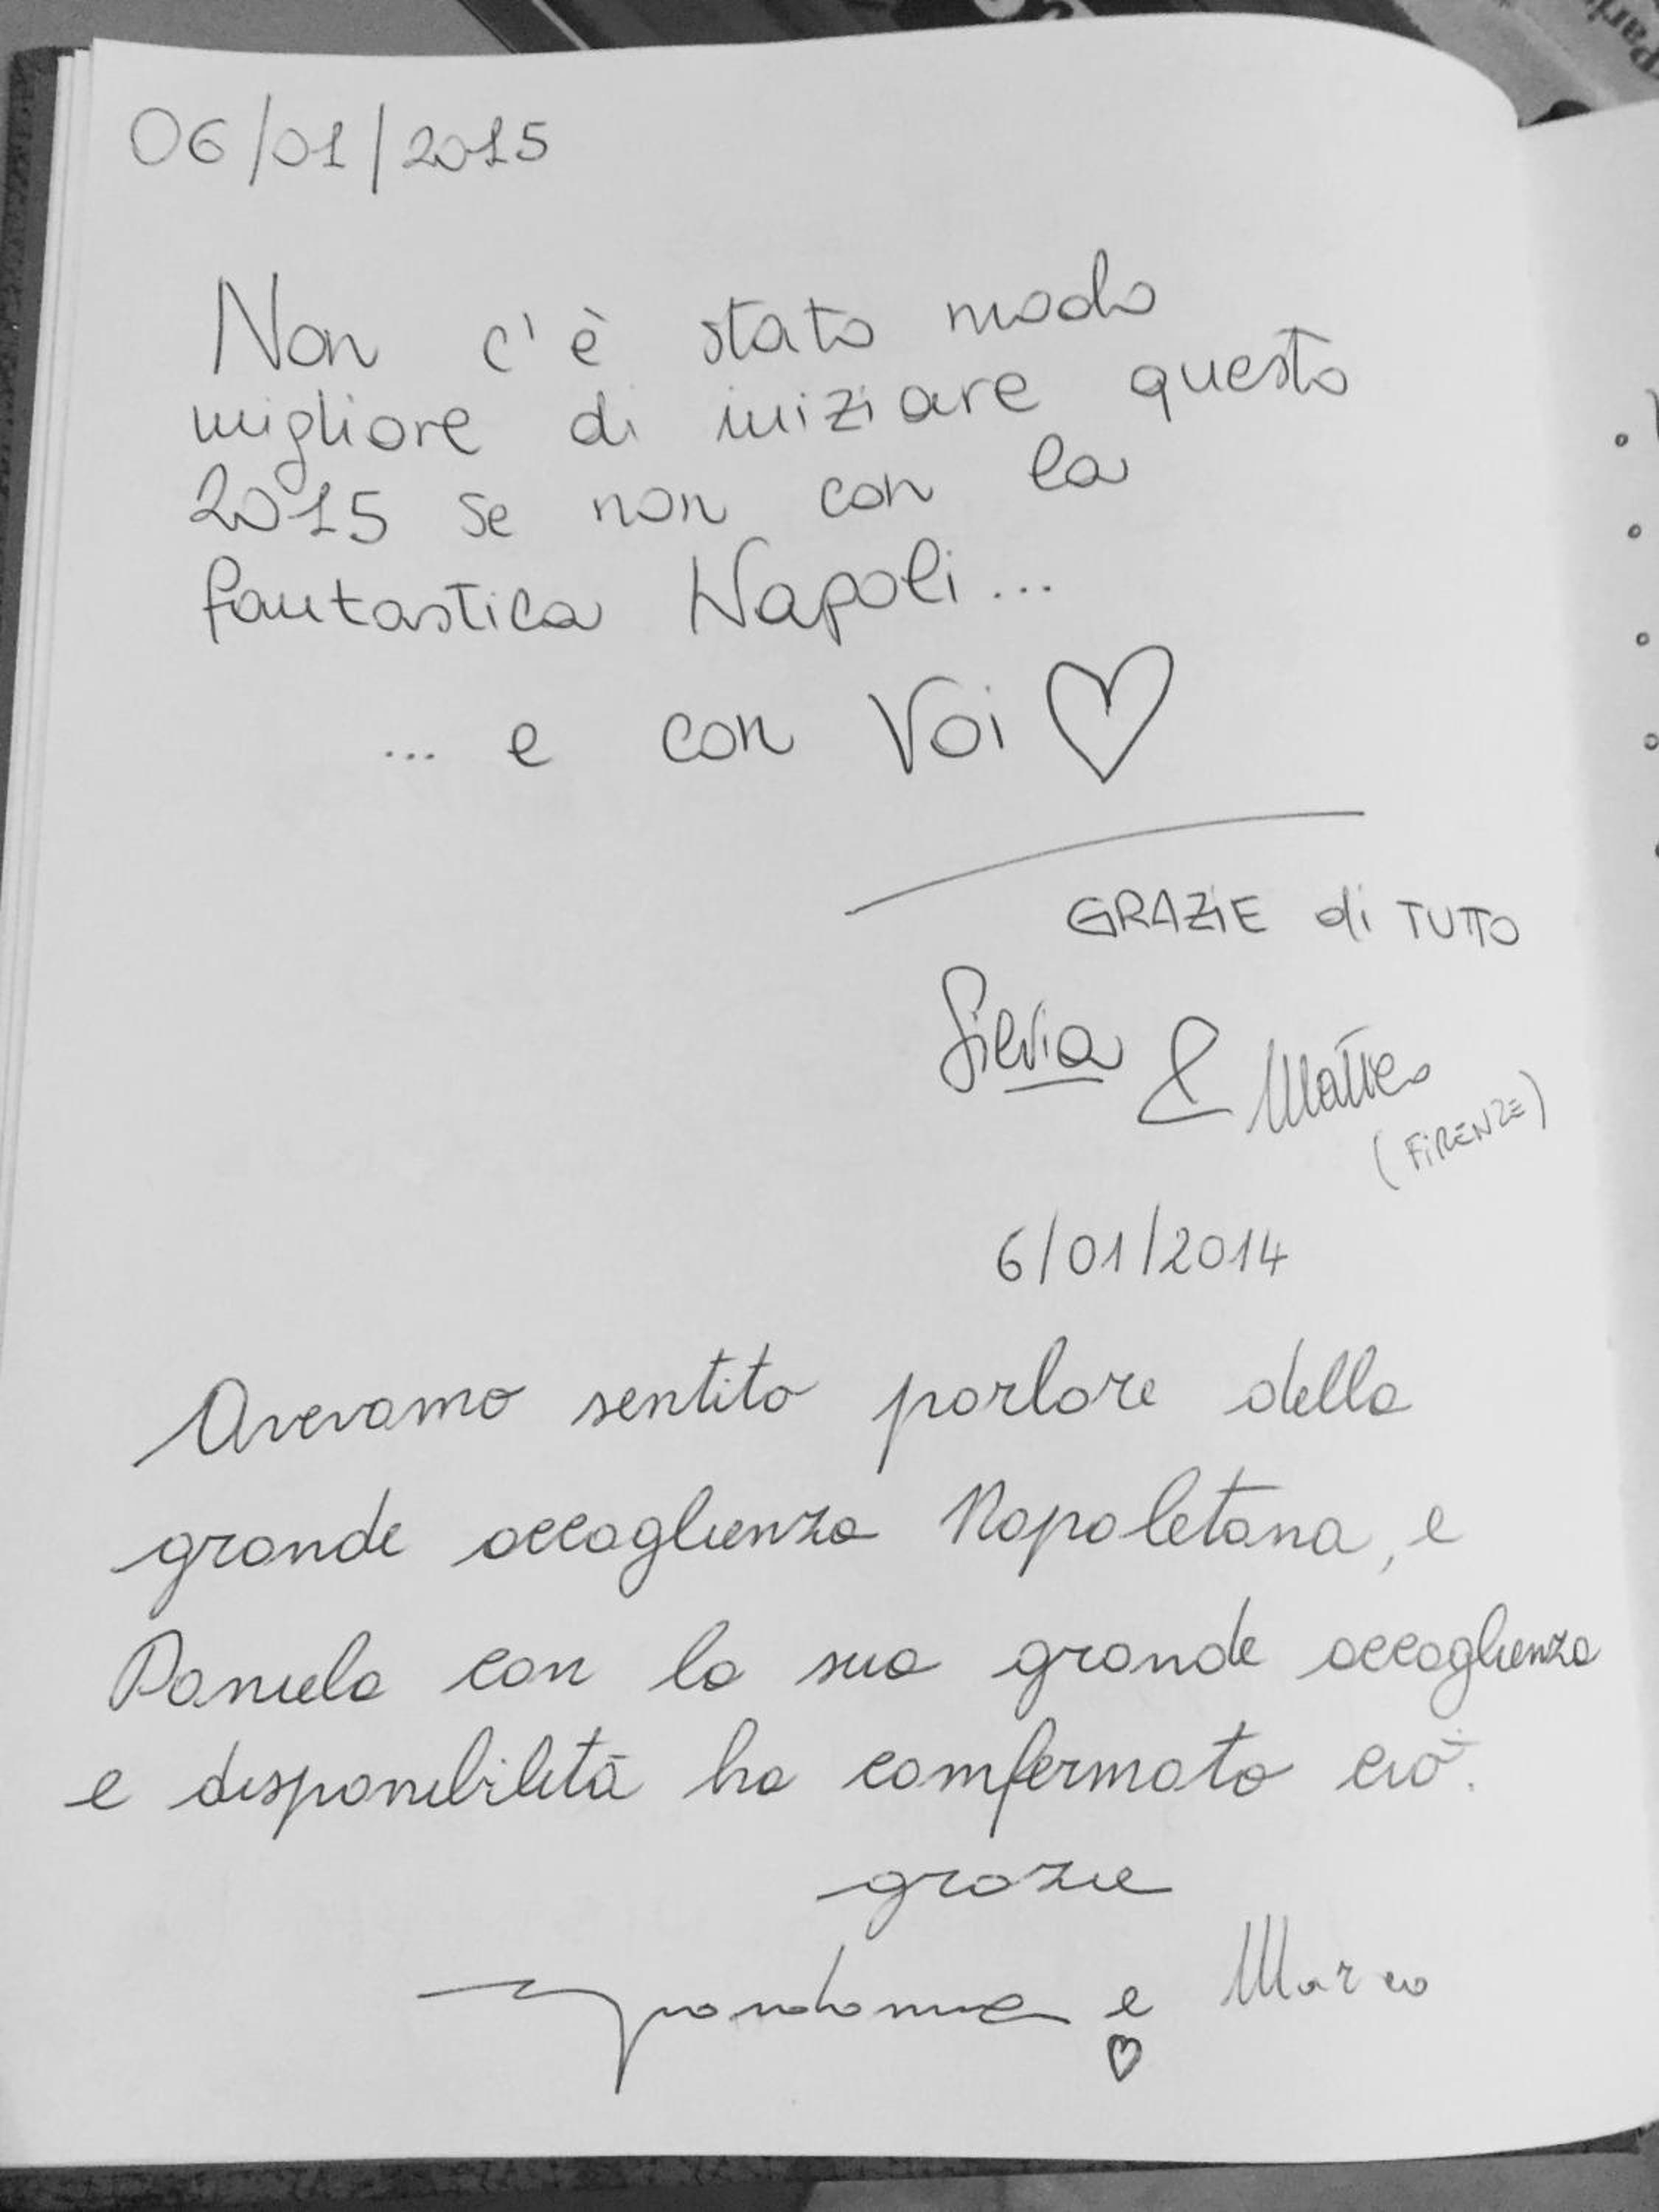 06/01/2015
Non c'è stato modo
migliore di iniziare questo
2015 se non con la
fantastica Napoli...
... e con Voi ♡
GRAZiE di TUTTO
Silvia & Matteo
(FiRENZE)
6/01/2014
Avevamo sentito parlare della
grande accoglienza Napoletana, e
Daniela con la sua grande accoglienza
e disponibilità ha comfermato ciò.
grazie
e Marco
♡